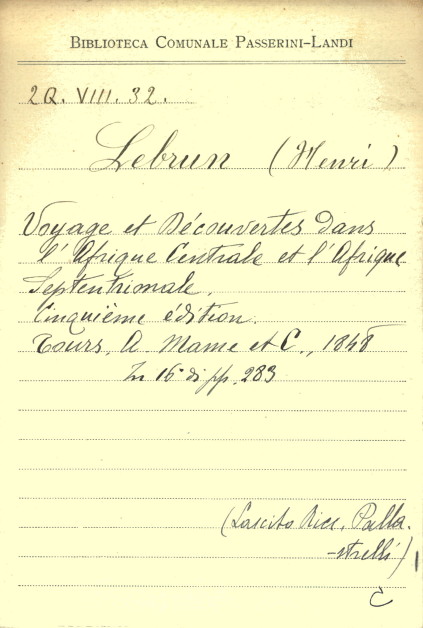 BIBLIOTECA COMUNALE PASSERINI-LANDI
2Q. VIII. 32.
Lebrun (Henri)
Voyage et Découvertes dans
l'Afrique Centrale et l'Afrique
Septentrionale.
Cinquième édition.
Tours, A. Mame et C., 1848
In 16° di pp. 283
(Lascito Palla-
-strelli)
C